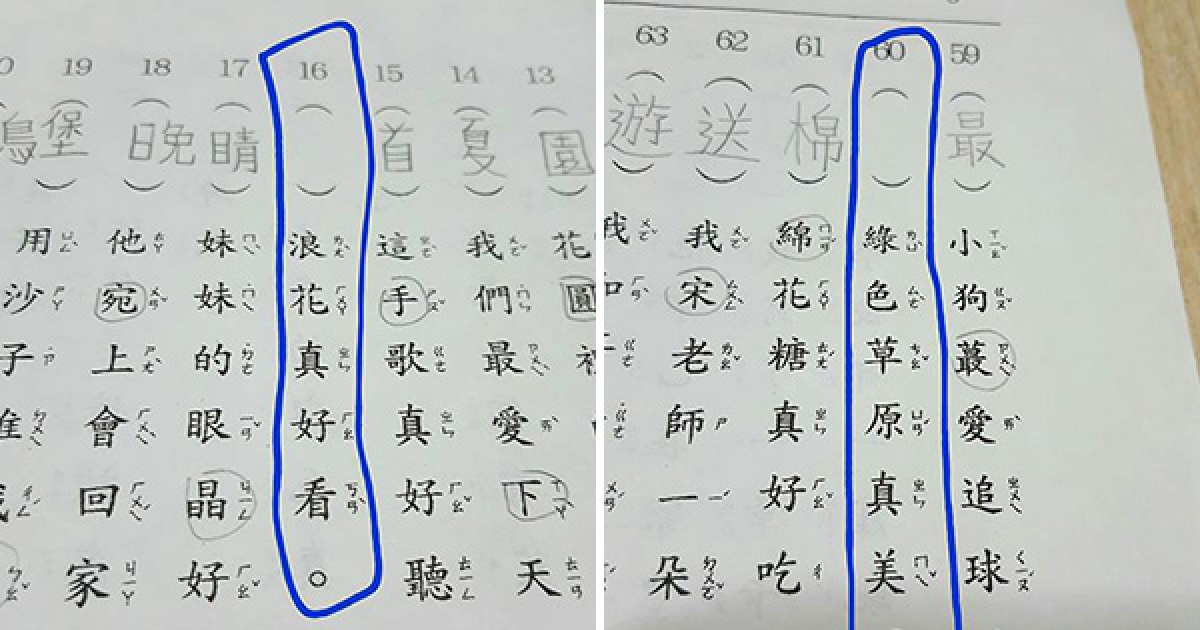 13 (園) 花圓
14 (夏) 我們最愛下天
15 (首) 這手歌真好聽
16 ( ) 浪花真好看。
17 (睛) 妹妹的眼晶好
18 (晚) 他宛上會回家
19 (堡) 用沙子堆
59 (最) 小狗蕞愛追球
60 ( ) 綠色草原真美
61 (棉) 綿花糖真好吃
62 (送) 我宋老師一朵
63 (遊) 我和